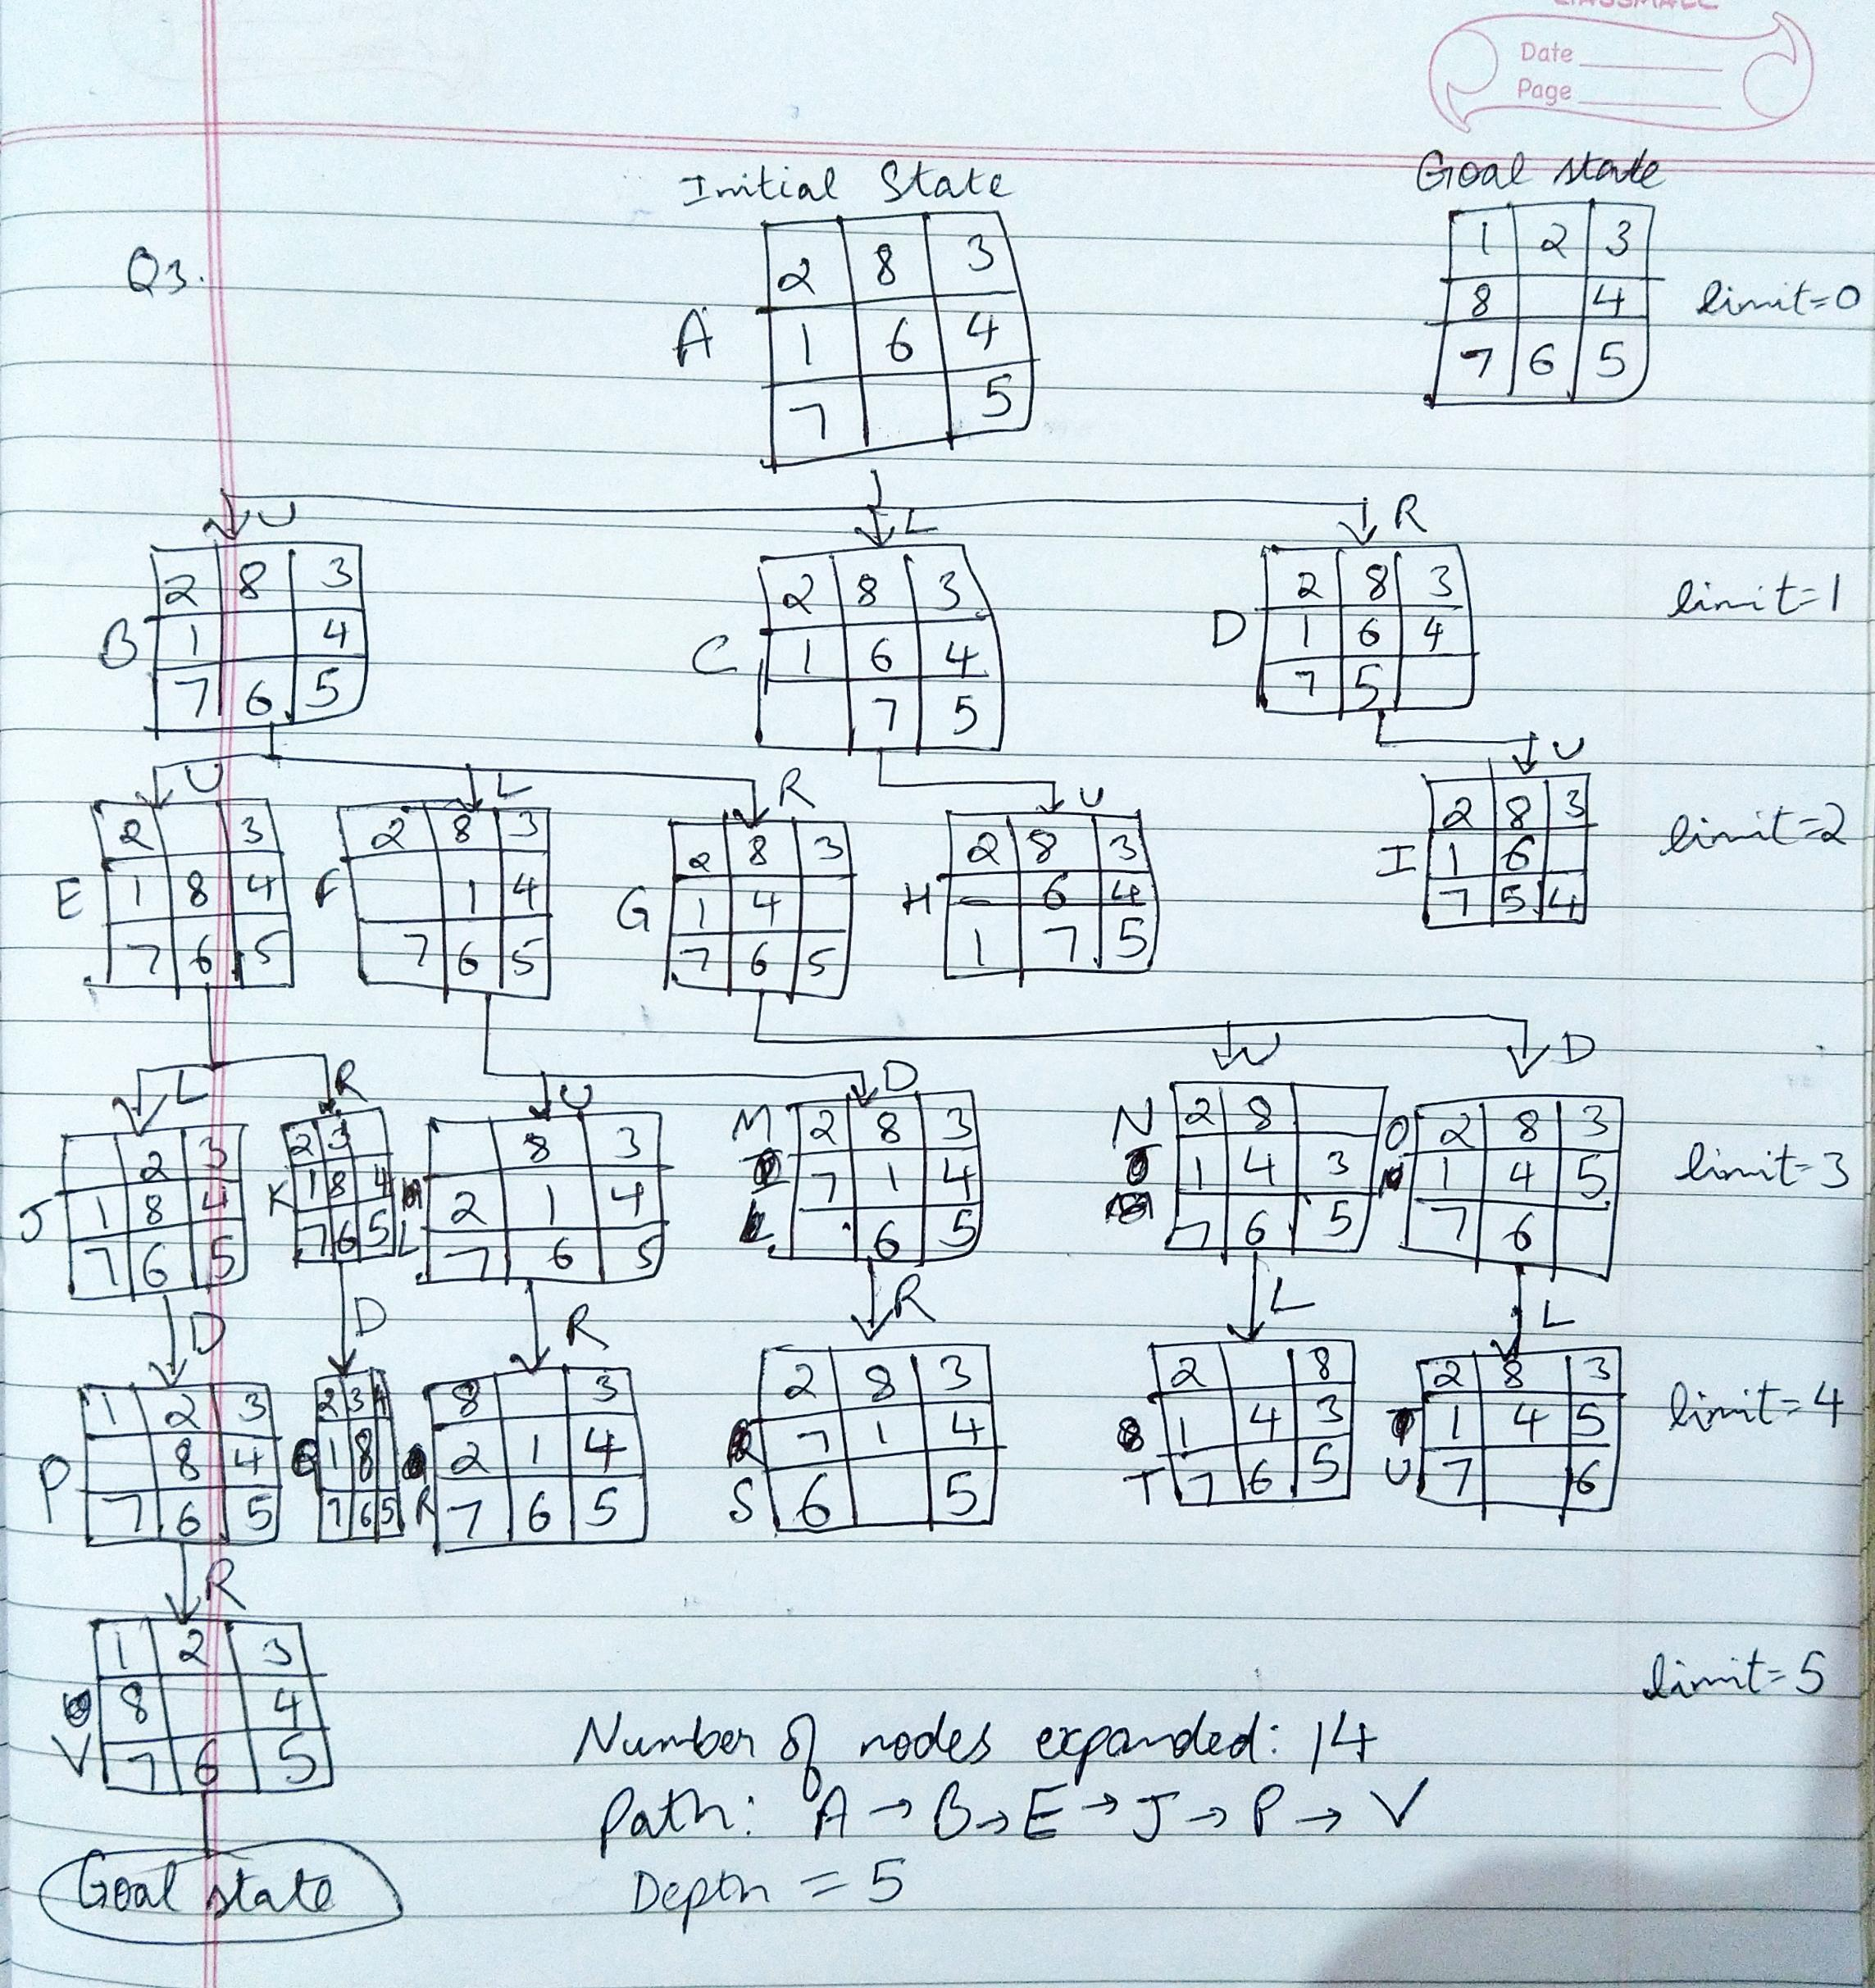 Date
Page
Initial State
Goal state
Q3.
A
2 8 3
1 6 4
7 5
1 2 3
8 4
7 6 5
limit=0
U
L
R
B
2 8 3
1 4
7 6 5
C
2 8 3
1 6 4
7 5
D
2 8 3
1 6 4
7 5
limit=1
U
L
R
U
U
E
2 3
1 8 4
7 6 5
F
2 8 3
1 4
7 6 5
G
2 8 3
1 4
7 6 5
H
2 8 3
6 4
1 7 5
I
2 8 3
1 6
7 5 4
limit=2
L
R
U
D
U
D
J
2 3
1 8 4
7 6 5
K
2 3
1 8 4
7 6 5
L
8 3
2 1 4
7 6 5
M
2 8 3
7 1 4
6 5
N
2 8
1 4 3
7 6 5
O
2 8 3
1 4 5
7 6
limit=3
D
D
R
R
L
L
P
1 2 3
8 4
7 6 5
Q
2 3 4
1 8
7 6 5
R
8 3
2 1 4
7 6 5
S
2 8 3
7 1 4
6 5
T
2 8
1 4 3
7 6 5
U
2 8 3
1 4 5
7 6
limit=4
R
V
1 2 3
8 4
7 6 5
limit=5
Number of nodes expanded: 14
Path: A → B → E → J → P → V
Depth = 5
Goal state